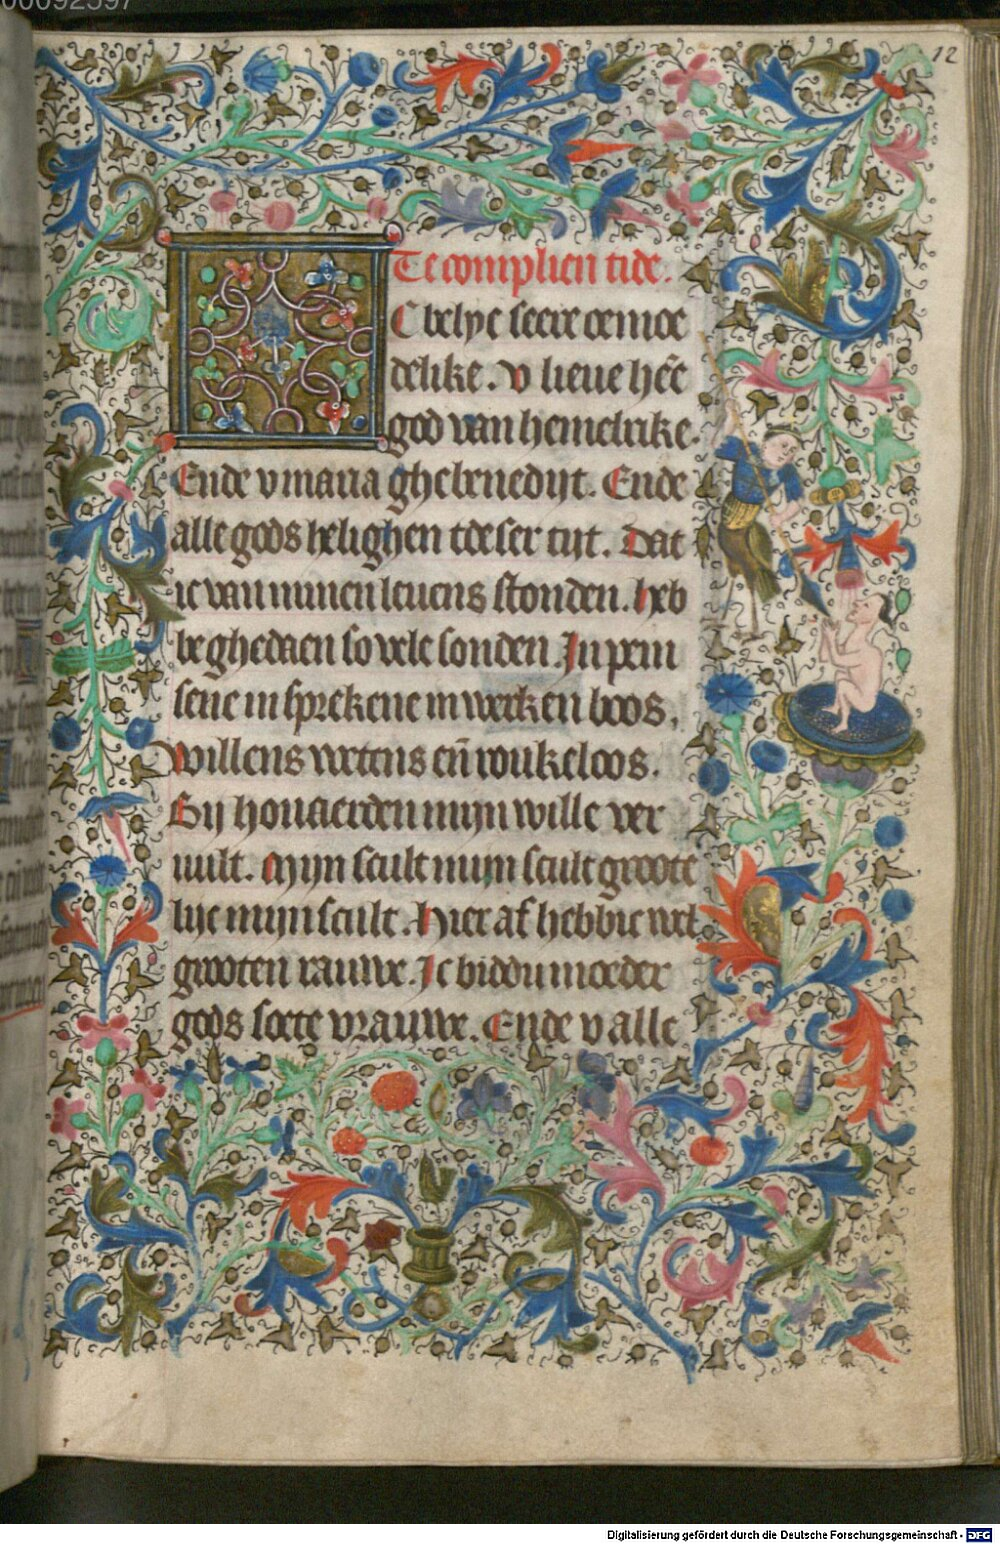 00092597
12
Te complien tide.
C belye seere oemoe
delike. v lieue hee͂
god van hemelrike.
Ende v maria ghebenedijt. Ende
alle gods helighen tdeser tijt. Dat
ic van minen leuens stonden. heb
be ghedaen so vele sonden. In pein
sene in sprekene in werken boos.
willens wetens en̄ roukeloos.
Bij houaerden mijn wille ver
vult. Mijn scult mijn scult groote
lijc mijn scult. Hier af hebbic wel
grooten rauwe. Ic biddu moeder
gods soete vrauwe. Ende v alle
Digitalisierung gefördert durch die Deutsche Forschungsgemeinschaft - DFG